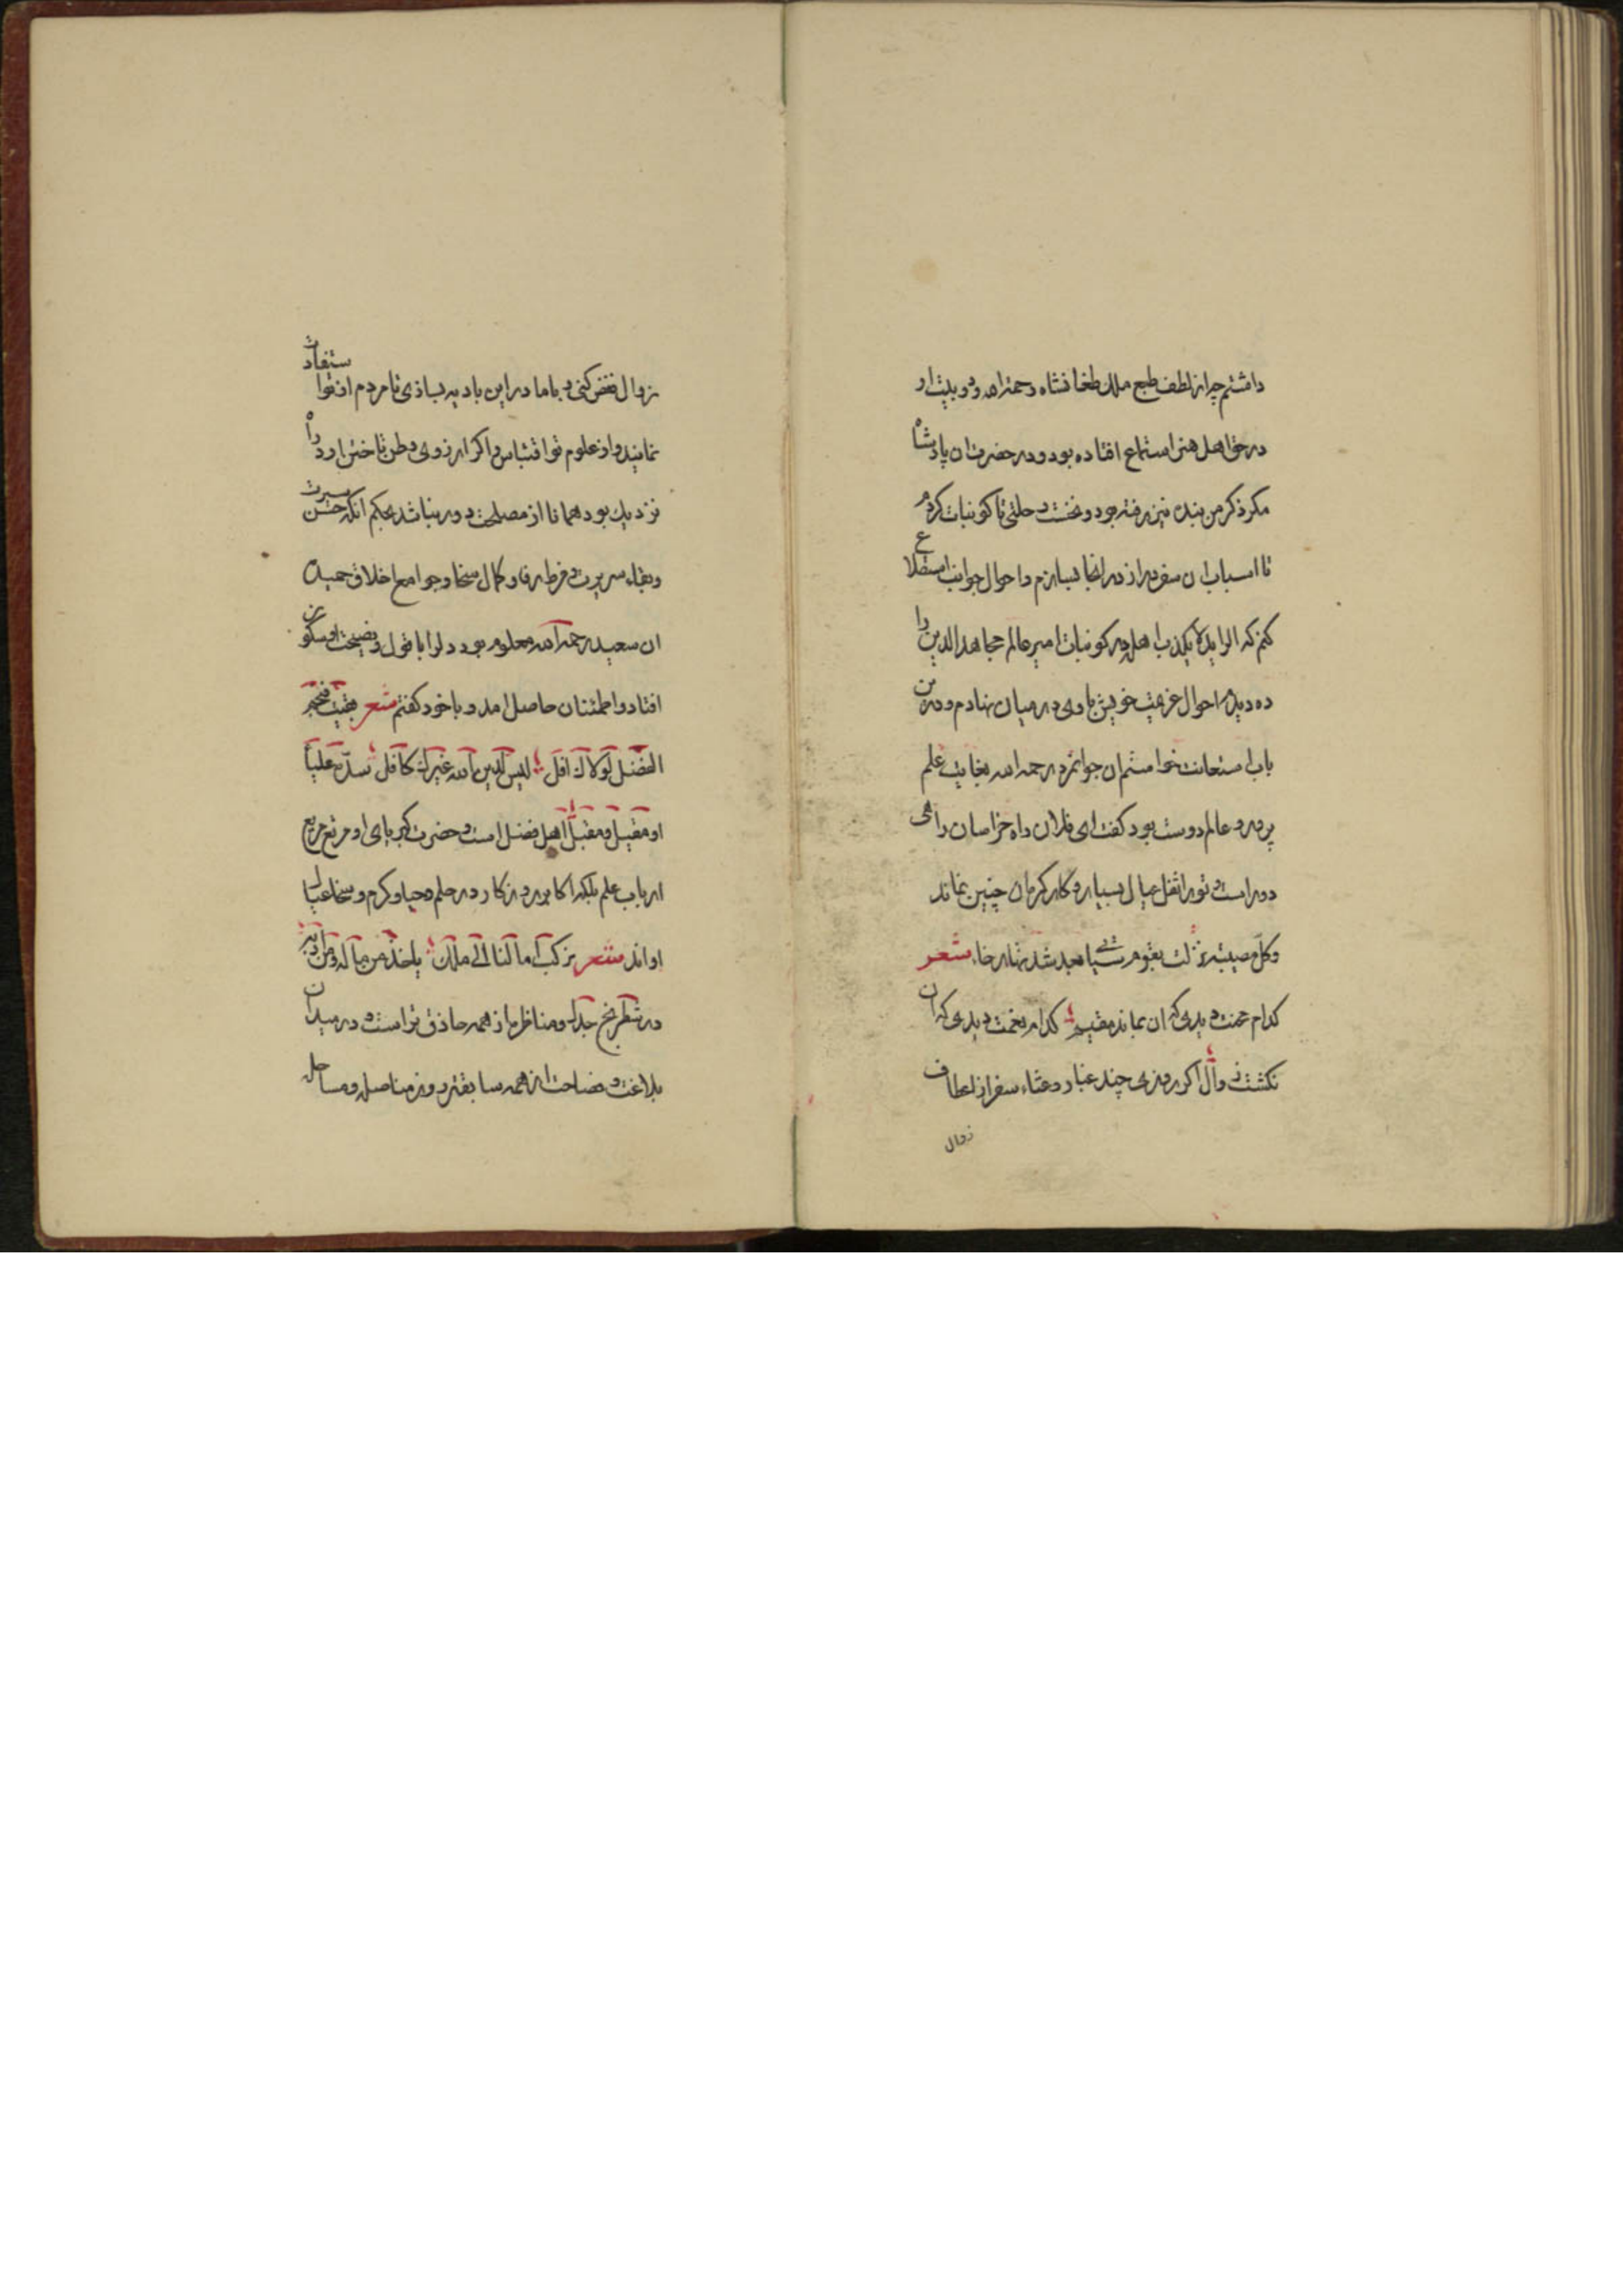 داشتم چه از لطف طبع ملک طغانشاه رحمة الله و دو بیت او
در حق اهل هنر استماع افتاده بود و در حضرت آن پادشاه
مکر ذکر من بنده نیز رفته بود و نخست رحلتی تا کوبنبات کردم
تا اسباب آن سفر دراز در انجا بسازم و احوال جوانب استطلاع
کنم که الراید لا یکذب اهله در کوبنبات امیر عالم مجاهد الدین را
ده دیدم احوال عزیمت خویش با وی در میان نهادم و در ین
باب استعانت خواستم ان جوانمرد رحمه الله بغایت علم
پرور و عالم دوست بود کفت ای فلان راه خراسان راهی
دور است و تو را ثقل عیال بسیار و کار کرمان چنین نماند
وکل مصیبة نزلت بقوم سیاتی بعد شدتها رخاء شعر
کدام محنت دیدی که ان بماند مقیم کدام نعمت دیدی که ان
نکشت زوال اکر روزی چند غبار وعثاء سفر از اعطاف
زوال
زوال نفض کنی و با ما در این بادیه بسازی تا مردم از تو استفادت
نمایند و از علوم تو اقتباس و اکر ارزوی وطن تاختن اورد راه
نزدیک بود همانا از مصلحت دور نباشد بحکم انکه حسن سیرت
ونقاء سریرت و فرط وفا و کمال سخا و جوامع اخلاق حمیده
ان سعید رحمه الله معلوم بود دلرا با قول و نصیحت او سکون
افتاد و اطمئنان حاصل امد و با خود کفتم شعر بقیت فنجم
الفضل لولاک افل لیس لدین الله غیرک کافل سدّه علیای
او مقیل و مقبّل اهل فضل است و حضرت کبریای او مرتع مربع
ارباب علم بلکه اکابر روزکار در حلم و حیا و کرم و سخا عیال
او اند شعر نرکب امالنا الی ملک یاخذ من ماله و من ادبه
در شطرنج جدال و مناظره از همه حاذق تر است و در میدان
بلاغت و فصاحت از همه سابقتر و در مناصله و مساجله